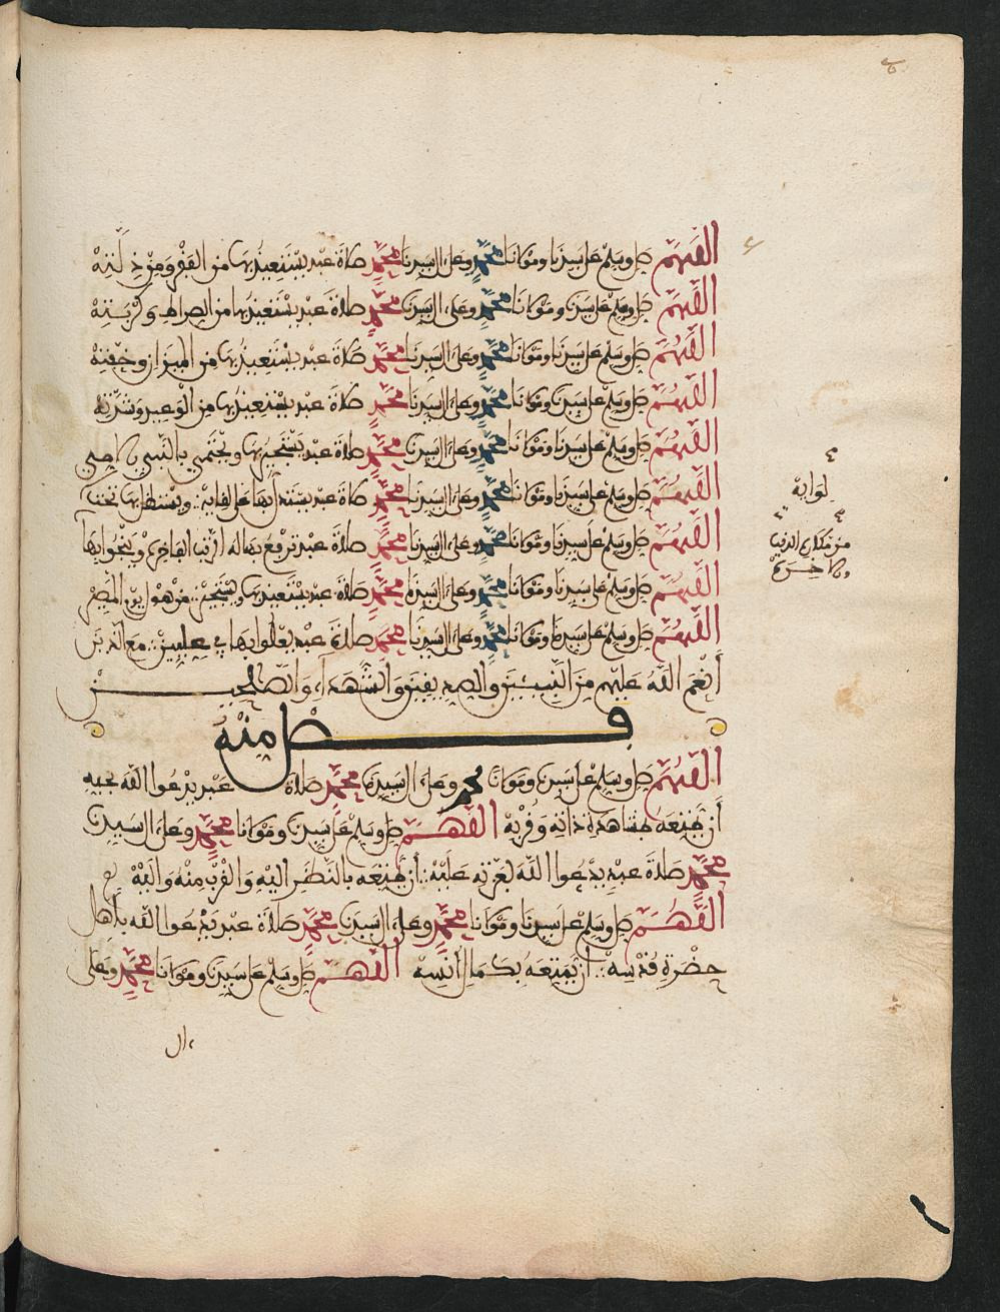 اللهم صل وسلم على سيدنا ومولانا محمد وعلى ءال سيدنا محمد صلاة عبد يستعيذ بها من الفقر و
اللهم صل وسلم على سيدنا ومولانا محمد وعلى ءال سيدنا محمد صلاة عبد يستعيذ بها من الصراط وكربته
اللهم صل وسلم على سيدنا ومولانا محمد وعلى ءال سيدنا محمد صلاة عبد يستعيذ بها من الميزان وخفته
اللهم صل وسلم على سيدنا ومولانا محمد وعلى ءال سيدنا محمد صلاة عبد يستعيذ بها من الوعيد وشدته
اللهم صل وسلم على سيدنا ومولانا محمد وعلى ءال سيدنا محمد صلاة عبد يستجير بها ويحتمي
اللهم صل وسلم على سيدنا ومولانا محمد وعلى ءال سيدنا محمد صلاة عبد ويستظل بها تحت
لوايه
اللهم صل وسلم على سيدنا ومولانا محمد وعلى ءال سيدنا محمد صلاة عبد ترفع بها له الرتب الفاخرة وينجوا بها
من
اللهم صل وسلم على سيدنا ومولانا محمد وعلى ءال سيدنا محمد صلاة عبد يستعيذ بها ويستجير من هول
اللهم صل وسلم على سيدنا ومولانا محمد وعلى ءال سيدنا محمد صلاة عبد يعلوا بها في عليين مع الذين
أنعم الله عليهم من النبيئين والصديقين والشهداء والصالحين
فصل منه
اللهم صل وسلم على سيدنا ومولانا محمد وعلى ءال سيدنا محمد صلاة عبد يدعوا الله
أن يمتعه بمشاهدة ذاته وقربه اللهم صل وسلم على سيدنا ومولانا محمد وعلى ءال سيدنا
محمد صلاة عبد يدعوا الله لعزته عليه أن يمتعه بالنظر إليه والقرب منه
اللهم صل وسلم على سيدنا ومولانا محمد وعلى ءال سيدنا محمد صلاة عبد يدعوا الله بأهل
حضرة قدسه أن يمتعه بكمال أنسه اللهم صل وسلم على سيدنا ومولانا محمد وعلى
ءال